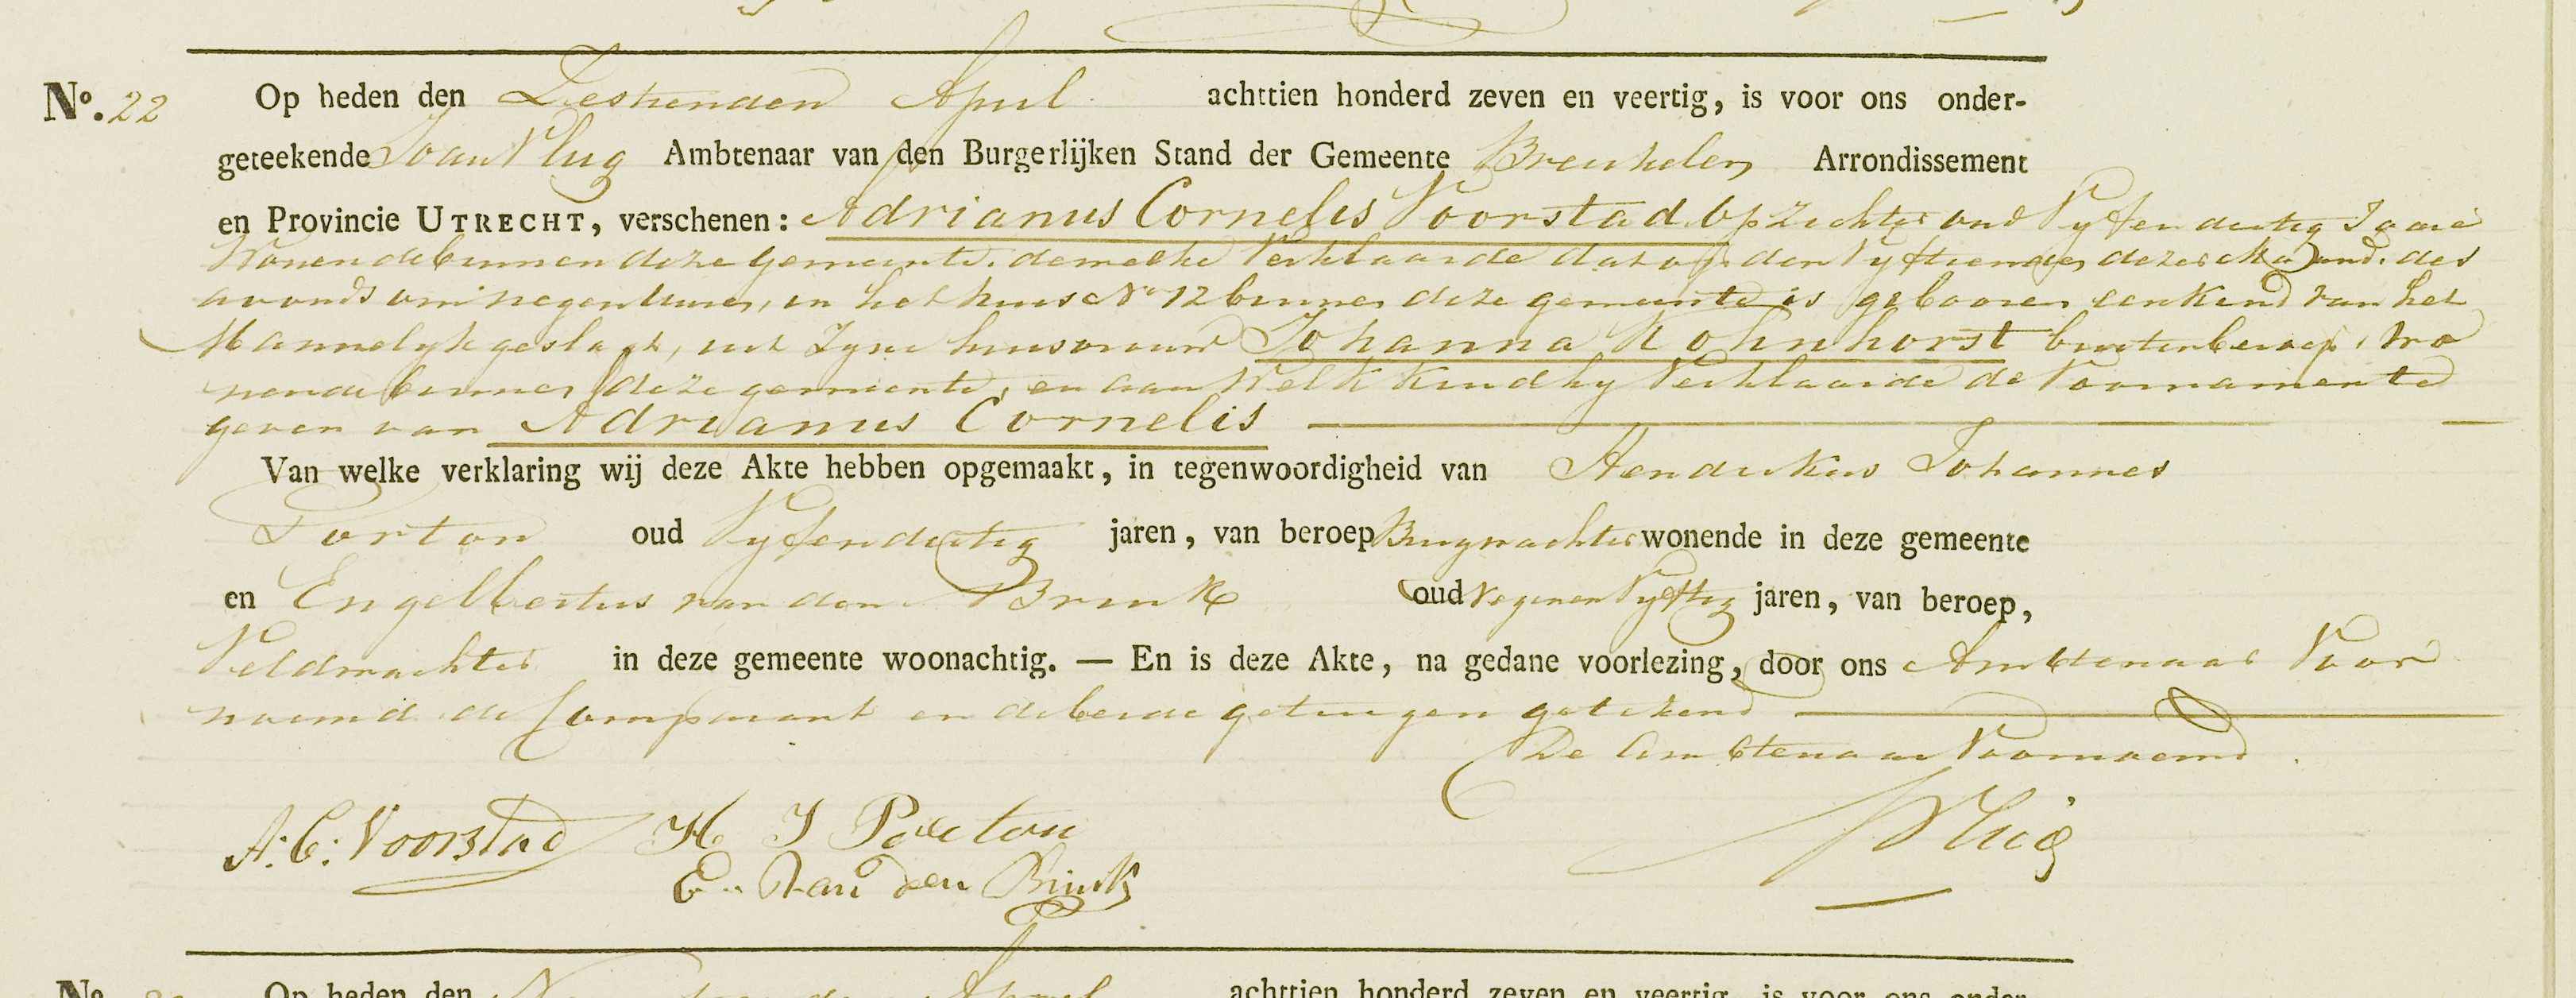 No. 22 Op heden den Zestienden April achttien honderd zeven en veertig, is voor ons onder-
geteekende Joan Vlug Ambtenaar van den Burgerlijken Stand der Gemeente Breukelen Arrondissement
en Provincie UTRECHT, verschenen: Adrianus Cornelis Voorstad Opzichter oud Vyf en dertig Jaare
Wonende binnen deze gemeente. demelke Verklaarde dat op den Vyftienden dezer Maand. des
avonds om negen Uuren, in het huis No 12 binnen deze gemeente is gebooren een kind van het
Mannelyk geslagt, uit Zyne huisvrouw Johanna Kohnhorst buiten beroep, Wo
nende binnen deze gemeente, en aan Welk Kind hy Verklaarde de Voornamen te
geven van Adrianus Cornelis
Van welke verklaring wij deze Akte hebben opgemaakt, in tegenwoordigheid van Hendrikus Johannes
Porton oud Vyf en dertig jaren, van beroep Brugwachter wonende in deze gemeente
en Engelbertus van den Brink oud Negen en Vyftig jaren, van beroep,
Veldwachter in deze gemeente woonachtig. — En is deze Akte, na gedane voorlezing, door ons Ambtenaar Voor
noemd de Comparant en de beide getuigen getekend
De Ambtenaar Voornoemd.
A: C: Voorstad H J Porton Vlug
E. Van den Brink
No. Op heden den April achttien honderd zeven en veertig, is voor ons onder-